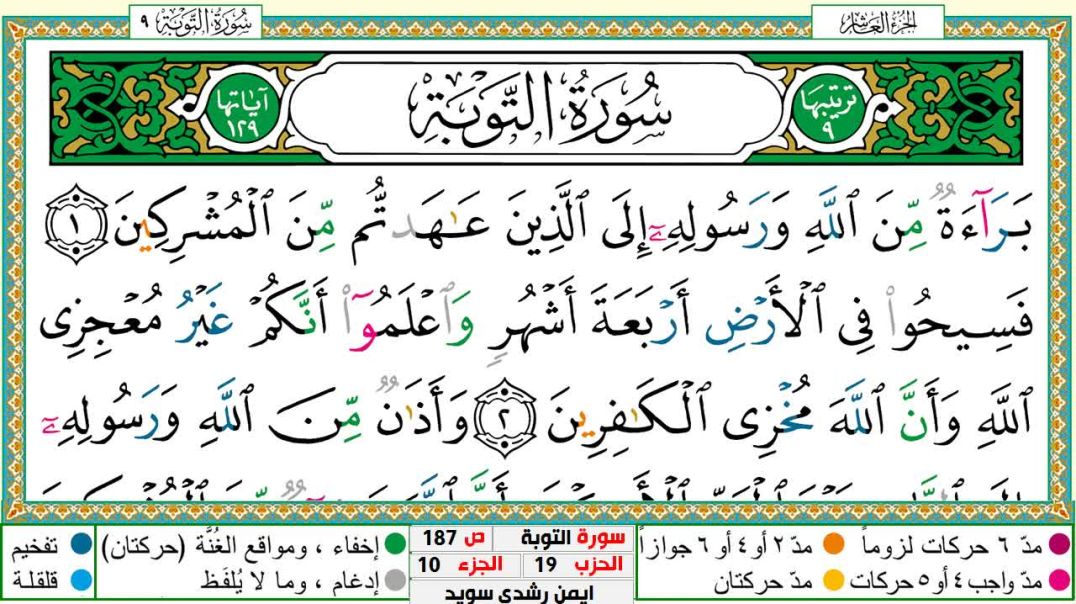 الجزء العاشر
سورة التوبة ٩
ترتيبها ٩
سُورَةُ التَّوْبَةِ
آياتها ١٢٩
بَرَآءَةٌ مِّنَ ٱللَّهِ وَرَسُولِهِۦٓ إِلَى ٱلَّذِينَ عَـٰهَدتُّم مِّنَ ٱلْمُشْرِكِينَ ١
فَسِيحُوا۟ فِى ٱلْأَرْضِ أَرْبَعَةَ أَشْهُرٍ وَٱعْلَمُوٓا۟ أَنَّكُمْ غَيْرُ مُعْجِزِى
ٱللَّهِ وَأَنَّ ٱللَّهَ مُخْزِى ٱلْكَـٰفِرِينَ ٢ وَأَذَٰنٌ مِّنَ ٱللَّهِ وَرَسُولِهِۦٓ
مدّ ٦ حركات لزوماً
مدّ ٢ أو ٤ أو ٦ جوازاً
مدّ واجب ٤ أو ٥ حركات
مدّ حركتان
سورة التوبة ص 187
الحزب 19 الجزء 10
ايمن رشدي سويد
إخفاء ، ومواقع الغُنَّة (حركتان)
إدغام ، وما لا يُلفَظ
تفخيم
قلقلة